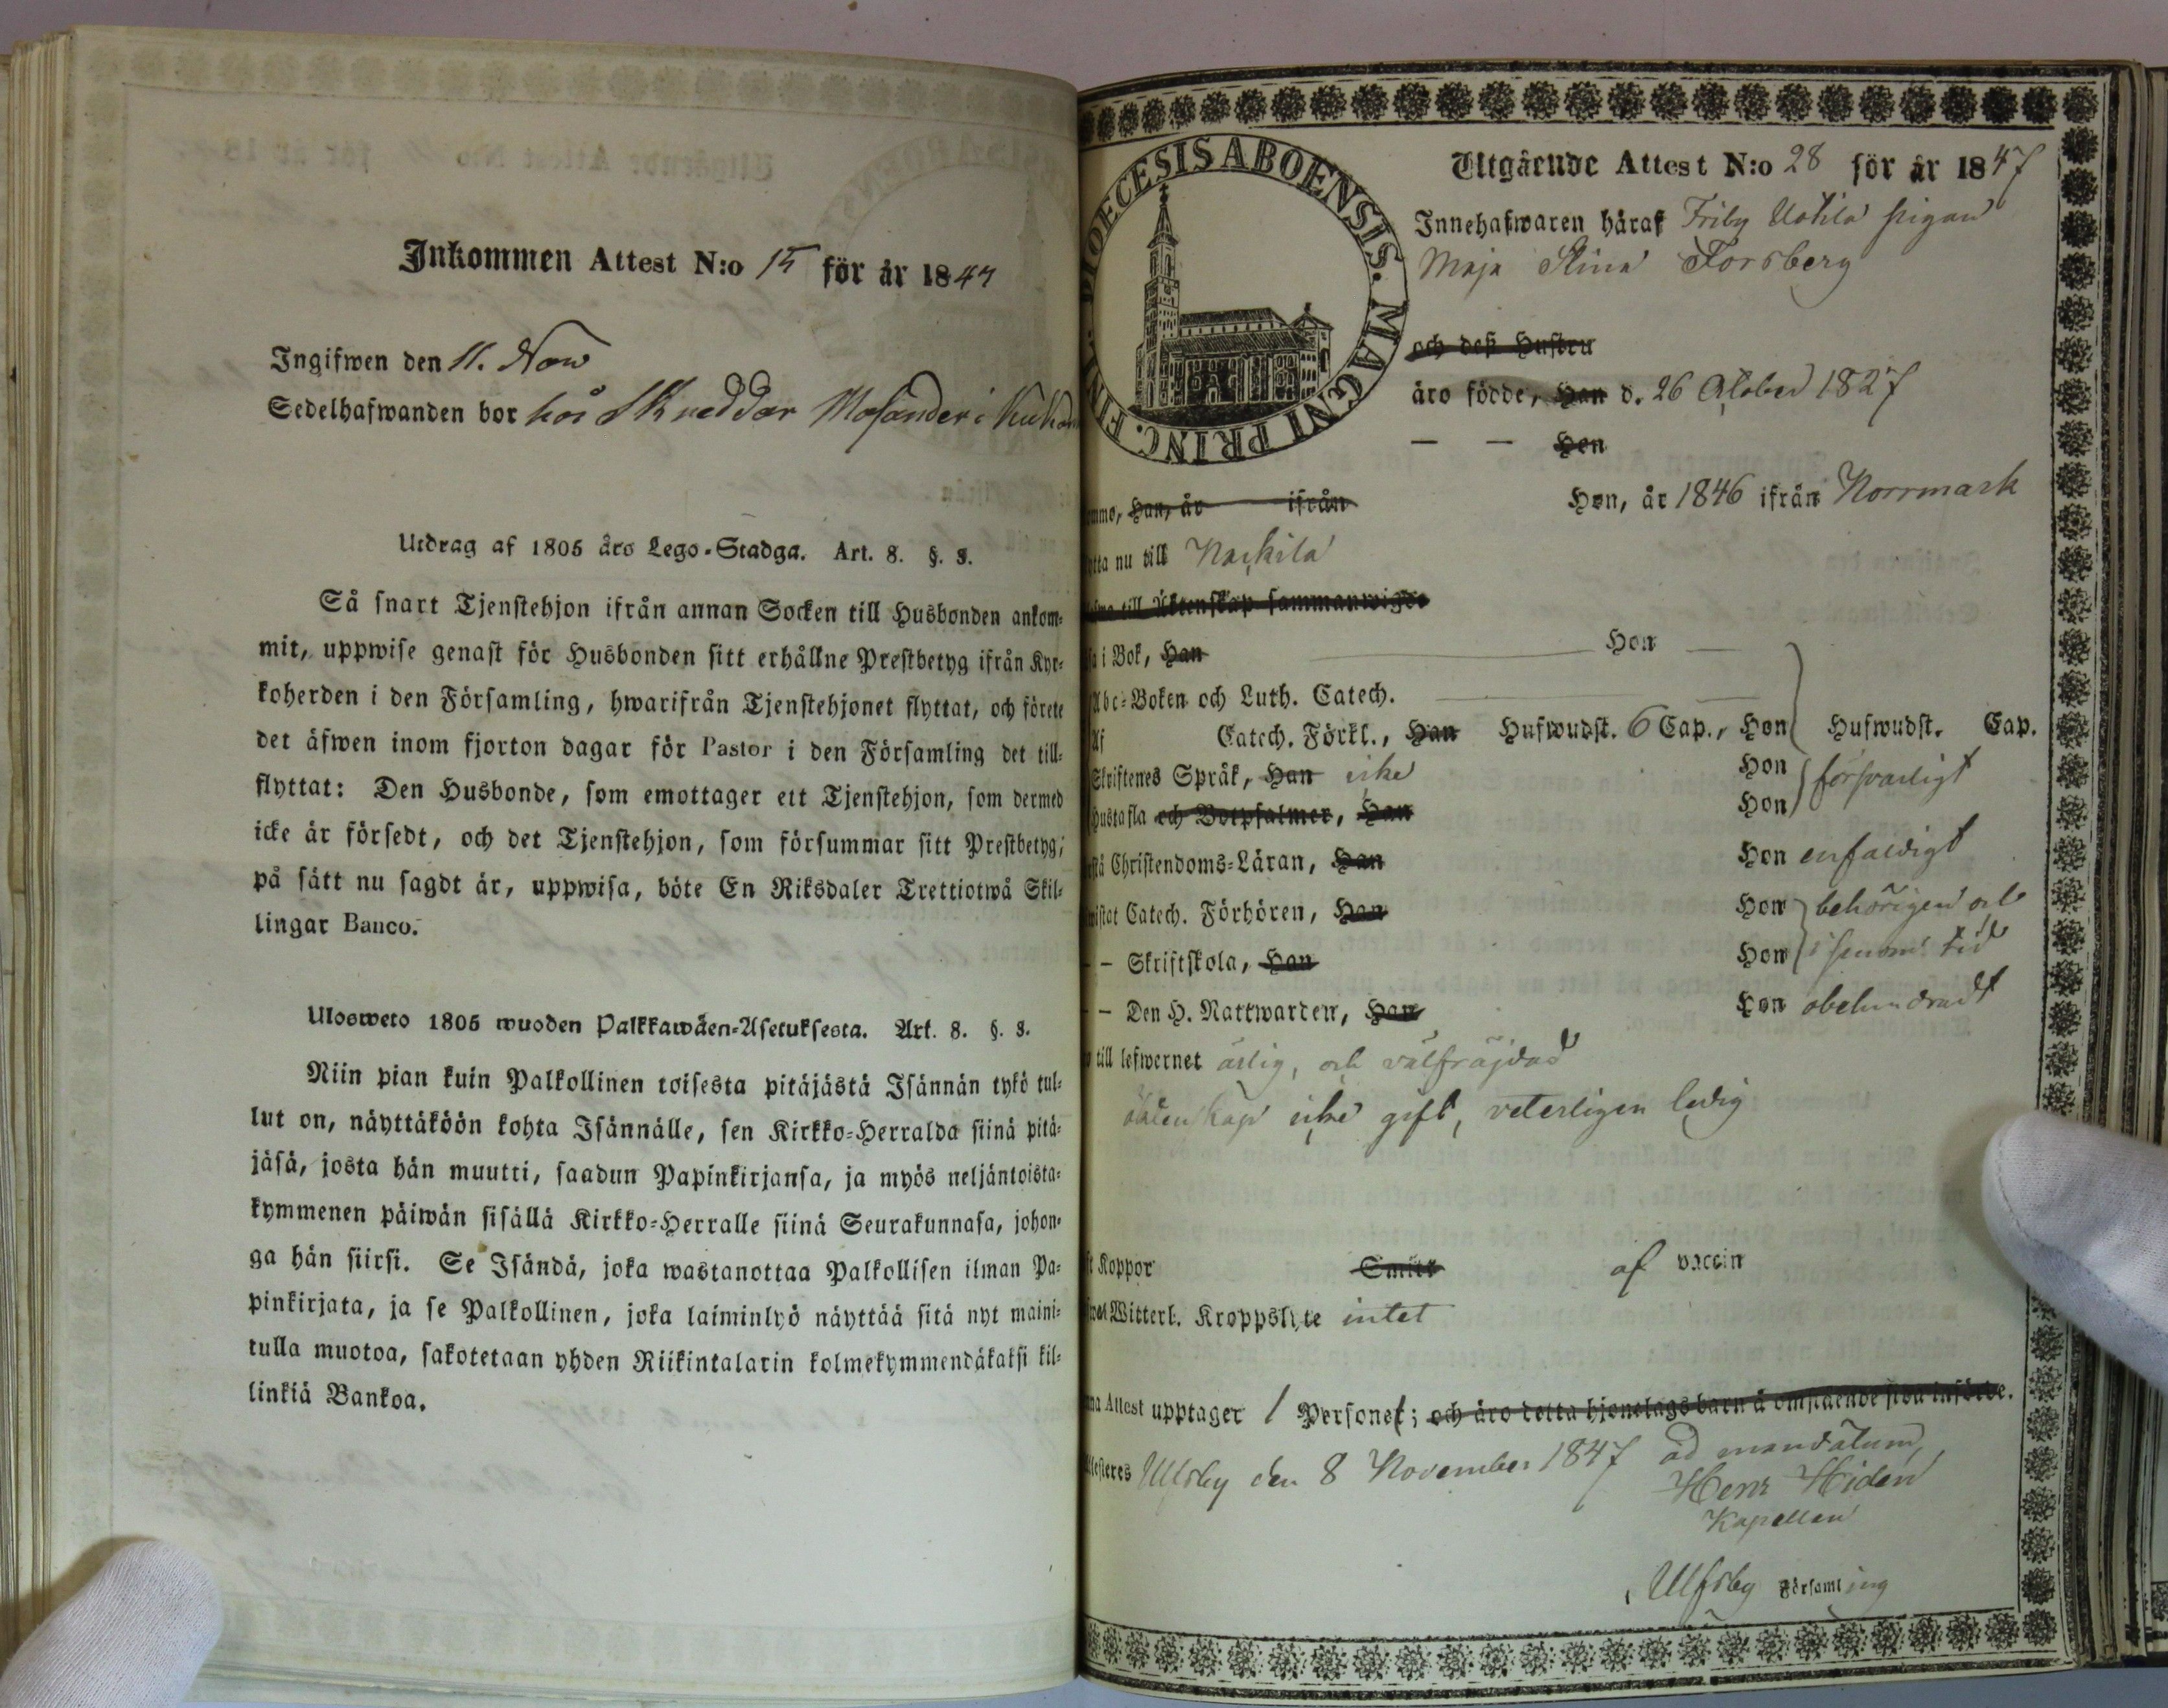 Inkommen Attest N:o 15 för år 1847
Ingifwen den 11. Nov
Sedelhafwanden bor hos Skreddar Mosander i
Utdrag af 1805 års Lego-Stadga. Art. 8. §. 3.
Så snart Tjenstehjon ifrån annan Socken till Husbonden ankom-
mit, uppwise genast för Husbonden sitt erhållne Prestbetyg ifrån Kyr-
koherden i den Församling, hwarifrån Tjenstehjonet flyttat, och förete
det äfwen inom fjorton dagar för Pastor i den Församling det till-
flyttat: Den Husbonde, som emottager ett Tjenstehjon, som dermed
icke är försedt, och det Tjenstehjon, som försummar sitt Prestbetyg,
på sätt nu sagdt är, uppwisa, böte En Riksdaler Trettiotwå Skil-
lingar Banco.
Ulosweto 1805 wuoden Palkkawäen-Asetuksesta. Art. 8. §. 3.
Niin pian kuin Palkollinen toisesta pitäjästä Isännän tykö tul-
lut on, näyttäköön kohta Isännälle, sen Kirkko-Herralda siinä pitä-
jäsä, josta hän muutti, saadun Papinkirjansa, ja myös neljäntoista-
kymmenen päiwän sisällä Kirkko-Herralle siinä Seurakunnasa, johon-
ga hän siirsi. Se Isändä, joka wastanottaa Palkollisen ilman Pa-
pinkirjata, ja se Palkollinen, joka laiminlyö näyttää sitä nyt maini-
tulla muotoa, sakotetaan yhden Riikintalarin kolmekymmendäkaksi kil-
linkiä Bankoa.
DIOECESIS ABOENSIS. MAGNI PRINC. FIN
Utgående Attest N:o 28 för år 1847
Innehafwaren häraf Friby Uotila pigan
Maja Stina Forsberg
och deß Hustru
äro födde, Han d. 26 October 1827
— — Hon
Han, år ifrån Hon, år 1846 ifrån Norrmark
nu till Nackila
till Äktenskap sammanwigde
i Bok, Han Hon
Abc-Boken och Luth. Catech.
Af Catech. Förkl., Han Hufwudst. 6 Cap., Hon Hufwudst. Cap.
Skriftenes Språk, Han icke Hon försvarligt
Hustafla och Botpsalmer, Han Hon
Christendoms-Läran, Han Hon enfaldigt
Catech. Förhören, Han Hon behörigen och
— Skriftskola, Han Hon i sinom tid
— Den H. Nattwarden, Han Hon obehindradt
till lefwernet ärlig, och välfräjdad
äktenskap icke gift, veterligen ledig
Koppor Smitt af vaccin
Witterl. Kroppslyte intet
Attest upptager 1 Personer; och äro detta hjonelags barn å omstående sida införde.
Ulfsby den 8 November 1847 ad mandatum
Henr Hiden
Kapellan
Ulfsby Församling